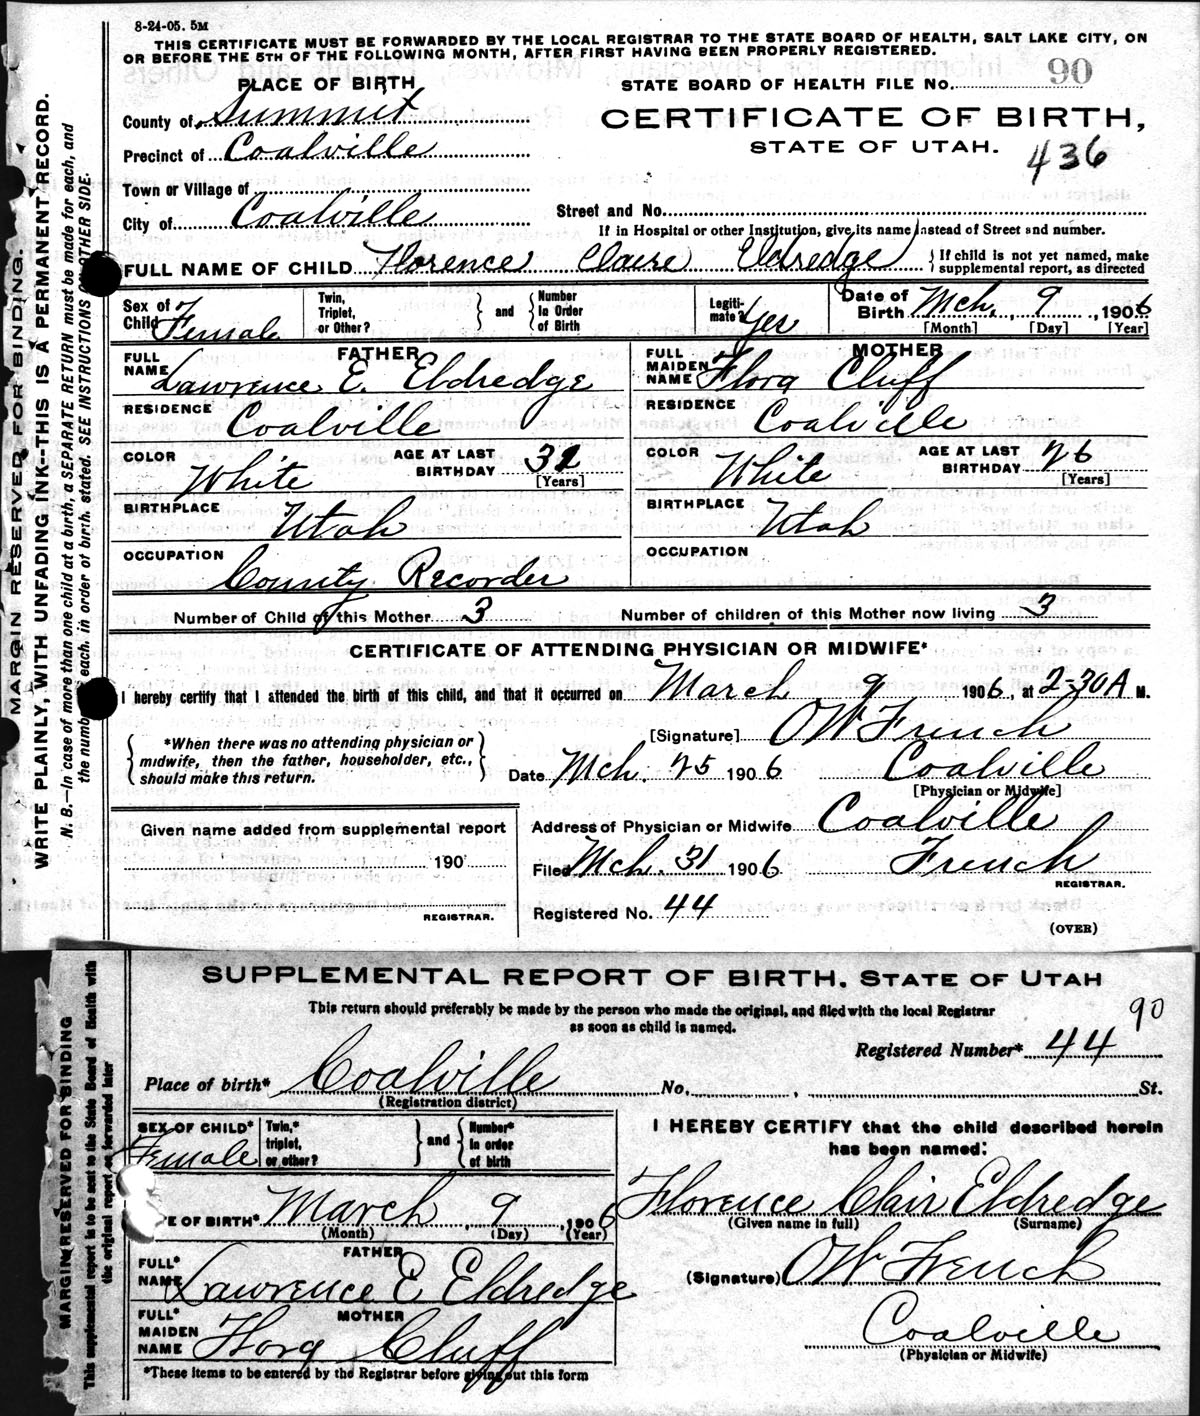 8-24-05. 5M
THIS CERTIFICATE MUST BE FORWARDED BY THE LOCAL REGISTRAR TO THE STATE BOARD OF HEALTH, SALT LAKE CITY, ON
OR BEFORE THE 5TH OF THE FOLLOWING MONTH, AFTER FIRST HAVING BEEN PROPERLY REGISTERED.
PLACE OF BIRTH
STATE BOARD OF HEALTH FILE NO. 90
County of Summit
CERTIFICATE OF BIRTH,
Precinct of Coalville
STATE OF UTAH.
436
Town or Village of
City of Coalville
Street and No.
If in Hospital or other Institution, give its name instead of Street and number.
FULL NAME OF CHILD Florence Claire Eldredge { If child is not yet named, make
supplemental report, as directed
Sex of Child Female
Twin, Triplet, or Other? } and { Number In Order of Birth
Legiti-mate? Yes
Date of Birth Mch. 9, 1906
[Month] [Day] [Year]
FATHER
FULL NAME Lawrence E. Eldredge
MOTHER
FULL MAIDEN NAME Flora Cluff
RESIDENCE Coalville
RESIDENCE Coalville
COLOR White AGE AT LAST BIRTHDAY 32 [Years]
COLOR White AGE AT LAST BIRTHDAY 26 [Years]
BIRTHPLACE Utah
BIRTHPLACE Utah
OCCUPATION County Recorder
OCCUPATION
Number of Child of this Mother 3 Number of children of this Mother now living 3
CERTIFICATE OF ATTENDING PHYSICIAN OR MIDWIFE*
I hereby certify that I attended the birth of this child, and that it occurred on March 9 1906, at 2-30 A M.
{ *When there was no attending physician or
midwife, then the father, householder, etc.,
should make this return. }
[Signature] O W French
Date Mch. 25 1906 Coalville
[Physician or Midwife]
Given name added from supplemental report
190
REGISTRAR.
Address of Physician or Midwife Coalville
Filed Mch. 31 1906 French
REGISTRAR.
Registered No. 44
(OVER)
MARGIN RESERVED FOR BINDING.
WRITE PLAINLY, WITH UNFADING INK--THIS IS A PERMANENT RECORD.
N. B.—In case of more than one child at a birth, a SEPARATE RETURN must be made for each, and
the number of each, in order of birth, stated. SEE INSTRUCTIONS ON OTHER SIDE.
SUPPLEMENTAL REPORT OF BIRTH. STATE OF UTAH
This return should preferably be made by the person who made the original, and filed with the local Registrar
as soon as child is named.
90
Registered Number* 44
Place of birth* Coalville No. , St.
(Registration district)
SEX OF CHILD* Female
Twin,* triplet, or other? } and { Number* in order of birth
I HEREBY CERTIFY that the child described herein
has been named:
DATE OF BIRTH* March 9, 1906
(Month) (Day) (Year)
Florence Clair Eldredge
(Given name in full) (Surname)
FATHER
FULL* NAME Lawrence E Eldredge
(Signature) O W French
MOTHER
FULL* MAIDEN NAME Flora Cluff
Coalville
(Physician or Midwife)
*These items to be entered by the Registrar before giving out this form
MARGIN RESERVED FOR BINDING
This supplemental report to be sent to the State Board of Health with
the original report or forwarded later